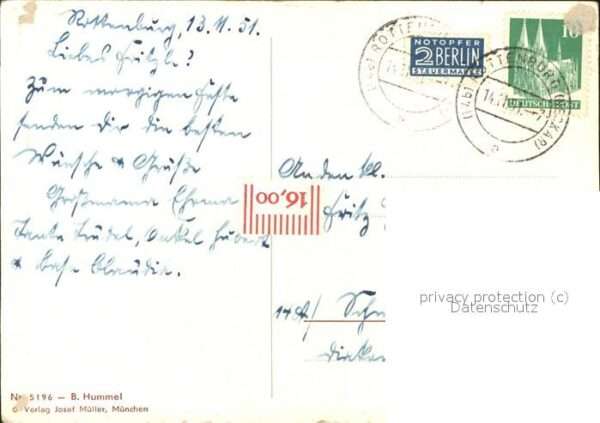 Rottenburg, 13.11.51.
Liebes Fritzle!
Zum morgigen Feste
senden dir die besten
Wünsche & Grüße
Großmama
Tante Trudel, Onkel Hubert
& Base Claudia.
NOTOPFER
2 BERLIN
STEUERMARKE
10
DEUTSCHE POST
An den kl.
Fritz
16,00
14a/
privacy protection (c)
Datenschutz
Nr. 5196 — B. Hummel
© Verlag Josef Müller, München